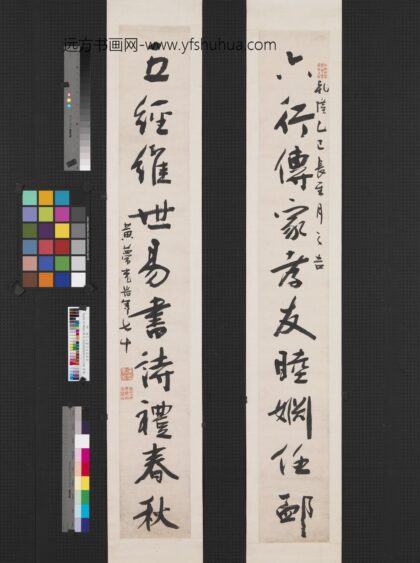 远方书画网-www.yfshuhua.com
六行傳家孝友睦婣任卹
乾隆乙巳長至月之吉
五經維世易書詩禮春秋
黃夢 年七十